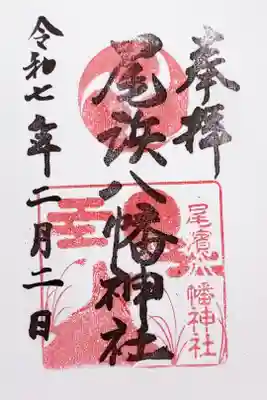 奉拝
尾浜八幡神社
尾濱八幡神社
令和七年二月二日